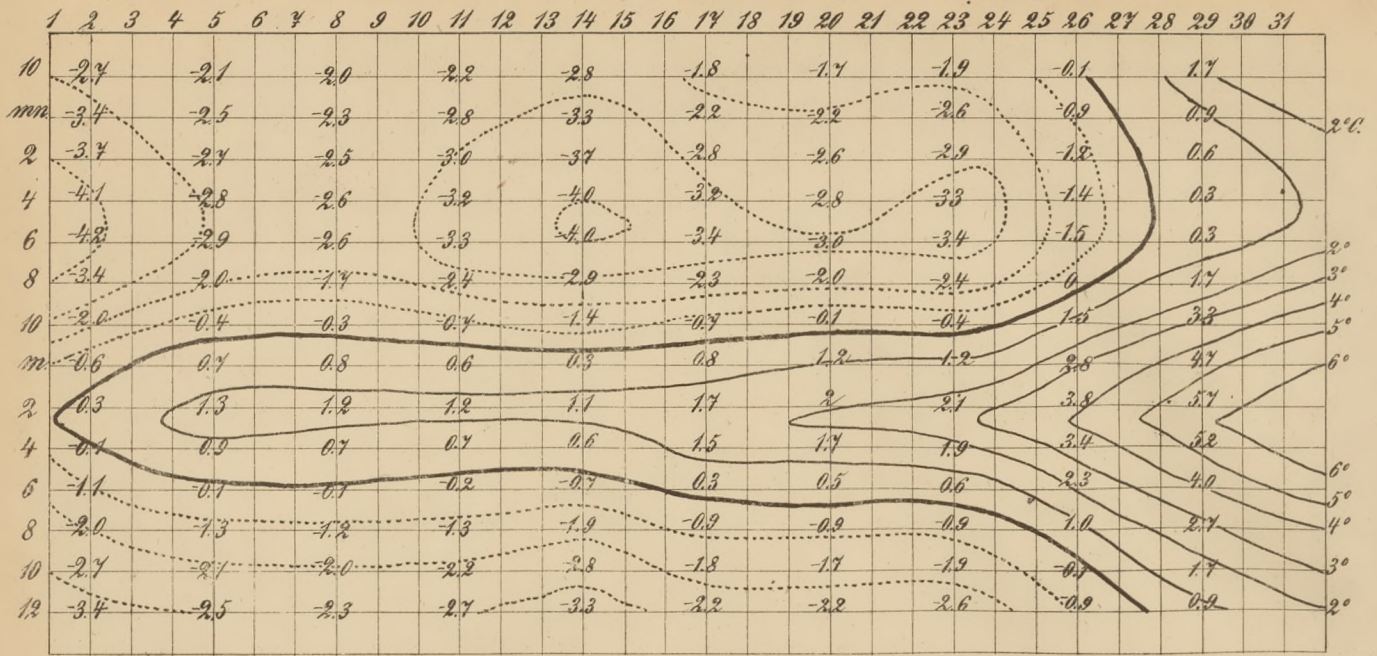 1 2 3 4 5 6 7 8 9 10 11 12 13 14 15 16 17 18 19 20 21 22 23 24 25 26 27 28 29 30 31
10 -2.7 -2.1 -2.0 -2.2 -2.8 -1.8 -1.7 -1.9 -0.1 1.7
mn. -3.4 -2.5 -2.3 -2.8 -3.3 -2.2 -2.2 -2.6 -0.9 0.9 2°C.
2 -3.7 -2.7 -2.5 -3.0 -3.7 -2.8 -2.6 -2.9 -1.2 0.6
4 -4.1 -2.8 -2.6 -3.2 -4.0 -3.2 -2.8 -3.3 -1.4 0.3
6 -4.2 -2.9 -2.6 -3.3 -4.0 -3.4 -3.0 -3.4 -1.5 0.3 2°
8 -3.4 -2.0 -1.7 -2.4 -2.9 -2.3 -2.0 -2.4 0 1.7 3°
4°
10 -2.0 -0.4 -0.3 -0.7 -1.4 -0.7 -0.1 -0.4 1.5 3.3 5°
m. -0.6 0.7 0.8 0.6 0.3 0.8 1.2 1.2 2.8 4.7 6°
2 0.3 1.3 1.2 1.2 1.1 1.7 2 2.1 3.8 5.7
4 -0.1 0.9 0.7 0.7 0.6 1.5 1.7 1.9 3.4 5.2 6°
6 -1.1 -0.1 -0.1 -0.2 -0.7 0.3 0.5 0.6 2.3 4.0 5°
8 -2.0 -1.3 -1.2 -1.3 -1.9 -0.9 -0.9 -0.9 1.0 2.7 4°
10 -2.7 -2.1 -2.0 -2.2 -2.8 -1.8 -1.7 -1.9 -0.1 1.7 3°
12 -3.4 -2.5 -2.3 -2.7 -3.3 -2.2 -2.2 -2.6 -0.9 0.9 2°